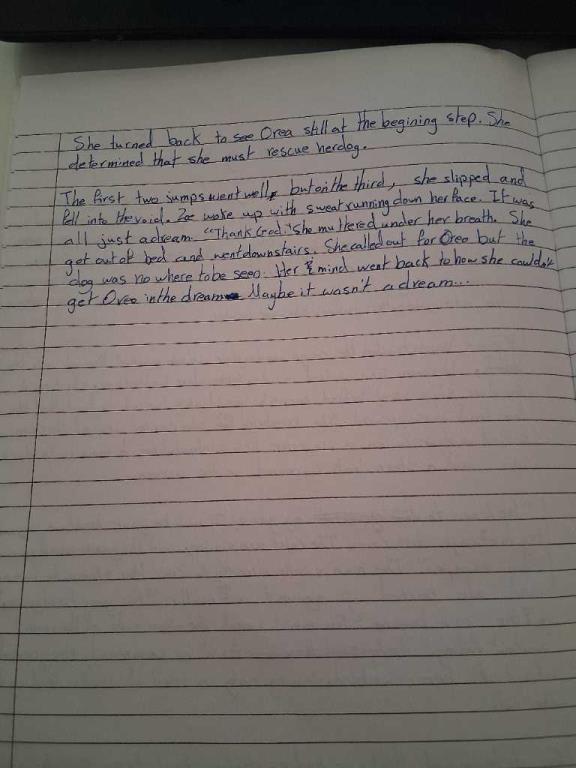 She turned back to see Orea still at the begining step. She
determined that she must rescue her dog.
The first two jumps went well, but on the third, she slipped and
fell into the void. Zoe woke up with sweat running down her face. It was
all just a dream. "Thank God." She muttered under her breath. She
get out of bed and went downstairs. She called out for Oreo but the
dog was no where to be seen. Her mind went back to how she couldn't
get Oreo in the dream. Maybe it wasn't a dream...